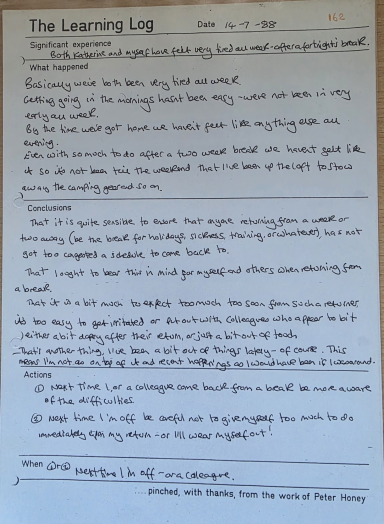 The Learning Log
Date 14-7-88
162
Significant experience
Both Katherine and myself have felt very tired all week - after a fortnight's break.
What happened
Basically we've both been very tired all week
Getting going in the mornings hasn't been easy - we're not been in very
early all week.
By the time we've got home we haven't felt like anything else all
evening.
Even with so much to do after a two week break we haven't felt like
it so it's not been till the weekend that I've been up the loft to stow
away the camping gear and so on.
Conclusions
That it is quite sensible to ensure that anyone returning from a week or
two away (be the break for holidays, sickness, training, or whatever) has not
got too congested a schedule to come back to.
That I ought to bear this in mind for myself and others when returning from
a break.
That it is a bit much to expect too much too soon from such a returner
it's too easy to get irritated or put out with colleagues who appear to bit
either a bit dopey after their return, or just a bit out of touch
That's another thing, I've been a bit out of things lately - of course. This
means I'm not so on top of it and recent happenings as I would have been if I was around.
Actions
① Next time I, or a colleague come back from a break be more aware
of the difficulties.
② Next time I'm off be careful not to give myself too much to do
immediately upon my return - or I'll wear myself out!
When ① or ② Next time I'm off - or a colleague.
....pinched, with thanks, from the work of Peter Honey